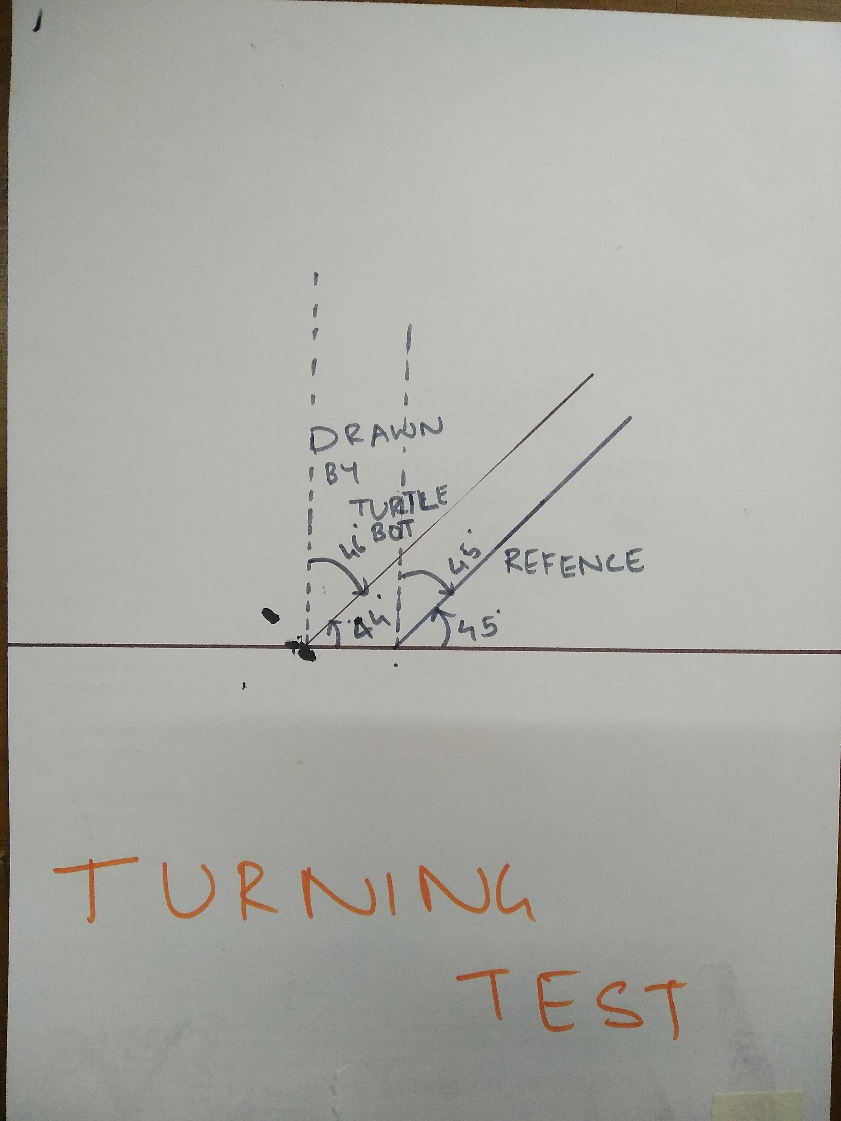 DRAWN
BY
TURTLE
BOT
46°
45°
REFENCE
44°
45°
TURNING
TEST